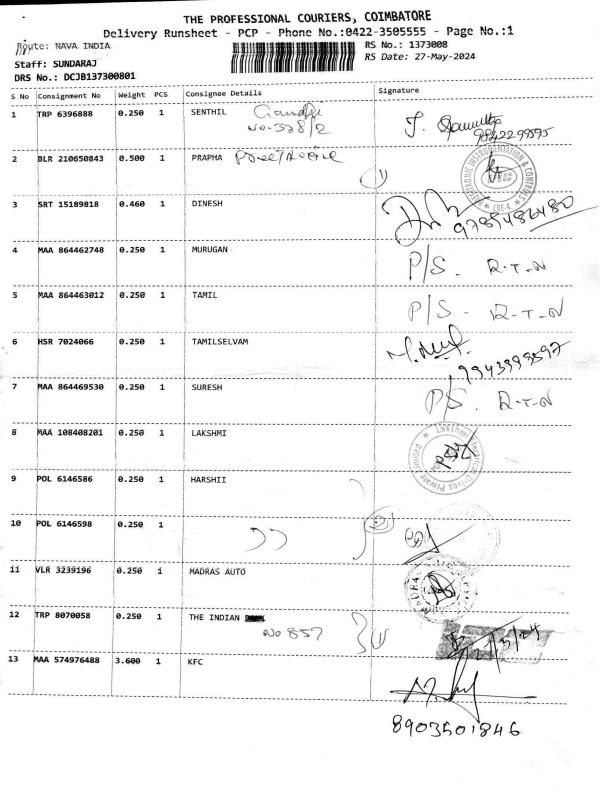 THE PROFESSIONAL COURIERS, COIMBATORE
Delivery Runsheet - PCP - Phone No.:0422-3505555 - Page No.:1
Route: NAVA INDIA
RS No.: 1373008
Staff: SUNDARAJ
RS Date: 27-May-2024
DRS No.: DCJB137300801
S No Consignment No Weight PCS Consignee Details Signature
1 TRP 6396888 0.250 1 SENTHIL Gandhi
No-338/2
9842299595
2 BLR 210650843 0.500 1 PRAPHA
3 SRT 15189818 0.460 1 DINESH
9789486480
4 MAA 864462748 0.250 1 MURUGAN P/S - R-T-N
5 MAA 864463012 0.250 1 TAMIL P/S - R-T-N
6 HSR 7024066 0.250 1 TAMILSELVAM
7 MAA 864469530 0.250 1 SURESH P/S. R-T-N
8 MAA 108408201 0.250 1 LAKSHMI
9 POL 6146586 0.250 1 HARSHII
10 POL 6146598 0.250 1
11 VLR 3239196 0.250 1 MADRAS AUTO
12 TRP 8070058 0.250 1 THE INDIAN
No 857
13 MAA 574976488 3.600 1 KFC
8903501846